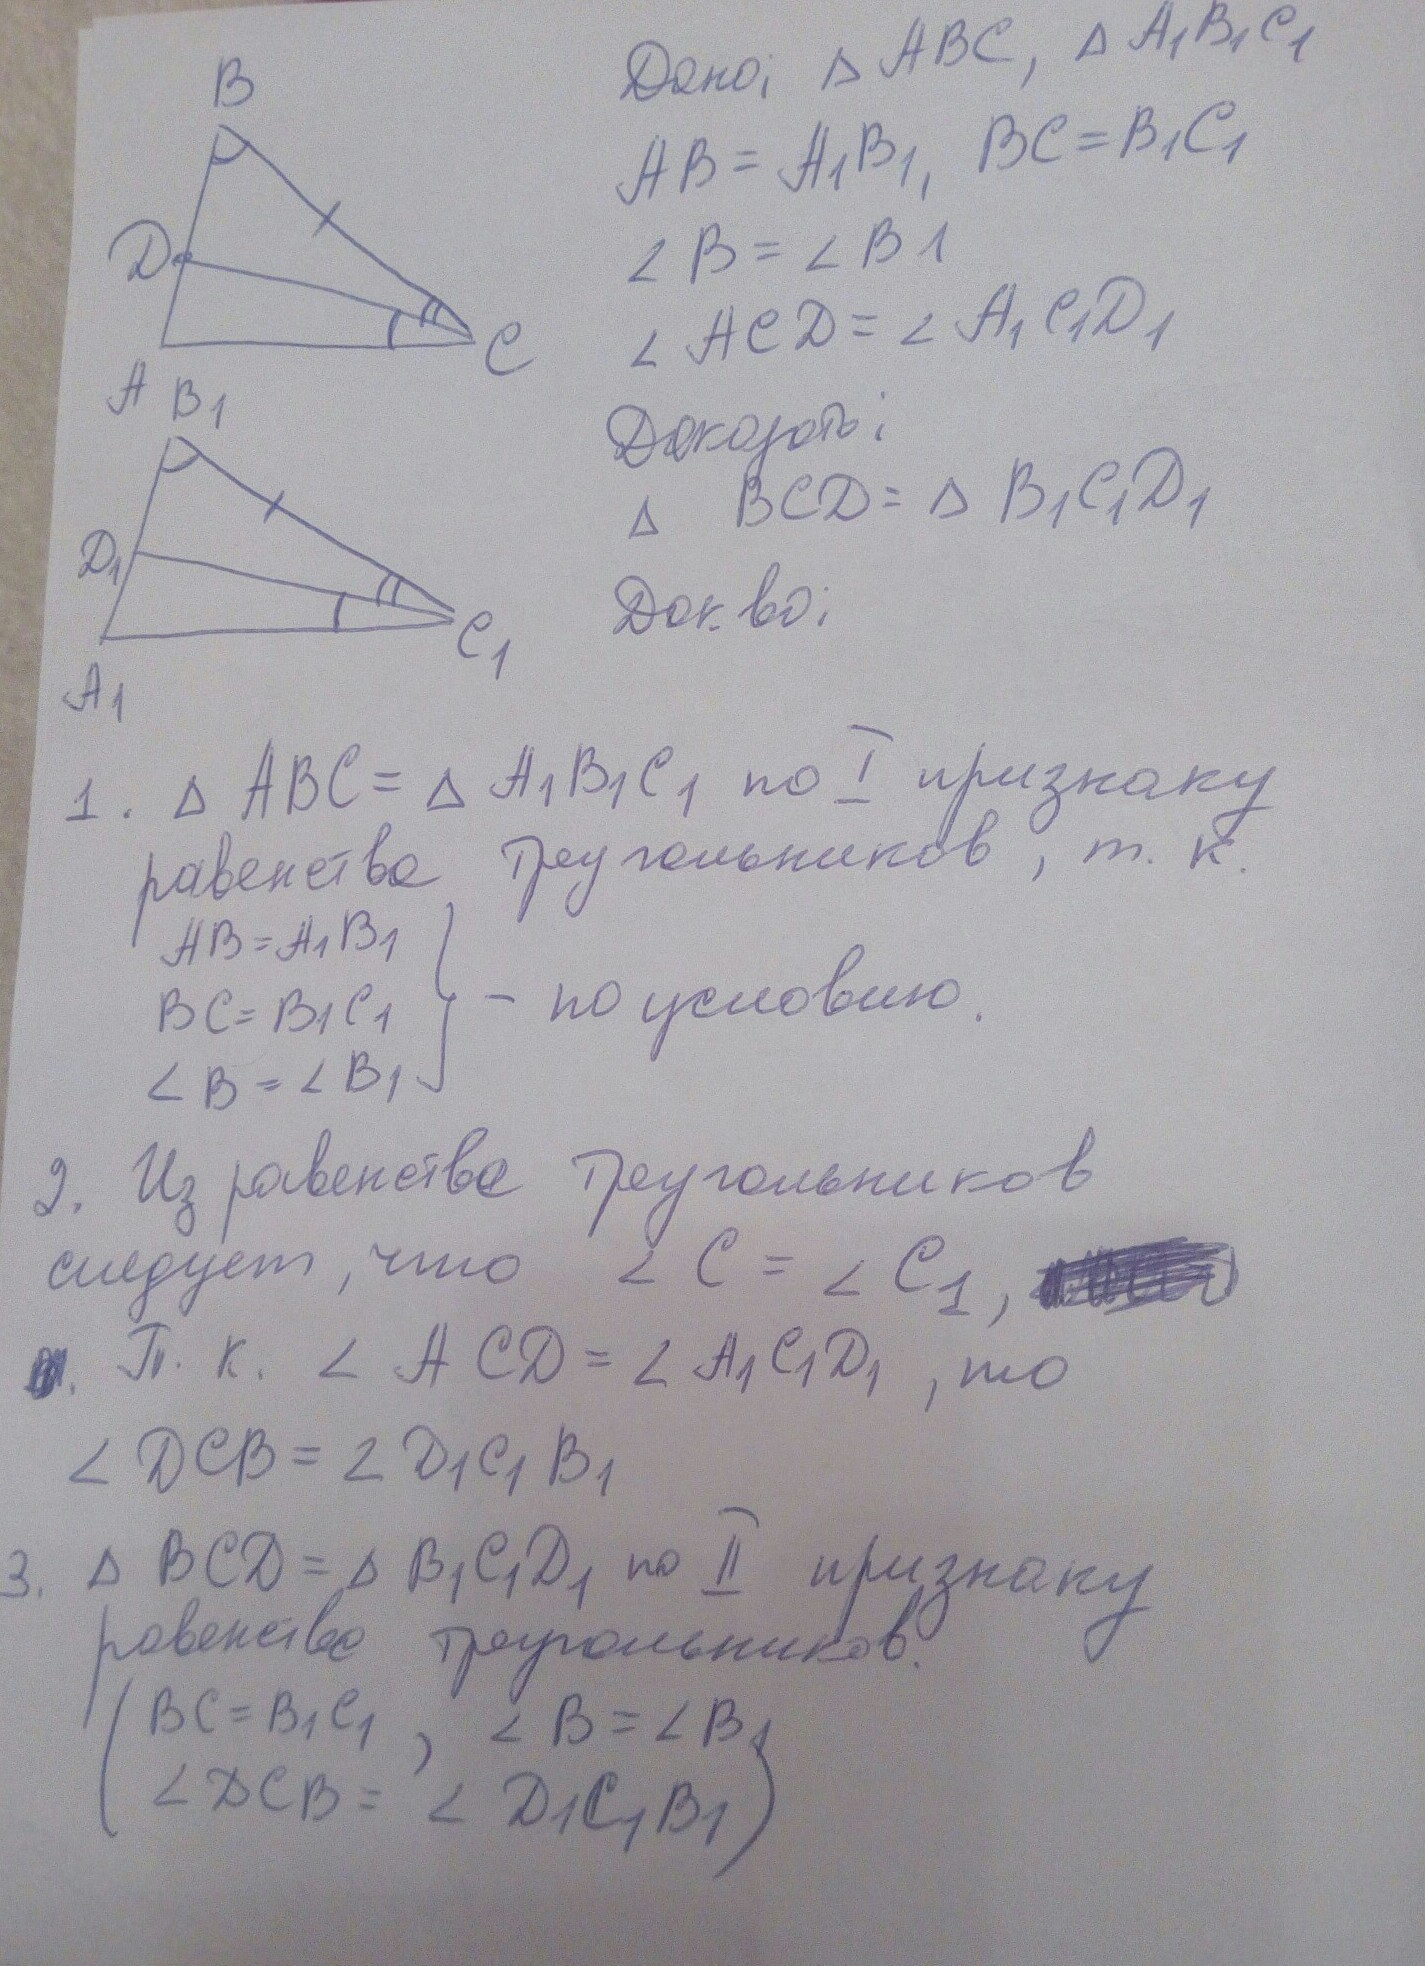 B
D
C
A
B₁
D₁
C₁
A₁
Дано: △ ABC, △ A₁B₁C₁
AB = A₁B₁, BC = B₁C₁
∠ B = ∠ B1
∠ ACD = ∠ A₁C₁D₁
Доказать:
△ BCD = △ B₁C₁D₁
Док. во:
1. △ ABC = △ A₁B₁C₁ по I признаку
равенства треугольников, т. к.
AB = A₁B₁
BC = B₁C₁
∠ B = ∠ B₁
} - по условию.
2. Из равенства треугольников
следует, что ∠ C = ∠ C₁,
Т. к. ∠ ACD = ∠ A₁C₁D₁, то
∠ DCB = ∠ D₁C₁B₁
3. △ BCD = △ B₁C₁D₁ по II признаку
равенства треугольников.
(BC = B₁C₁, ∠ B = ∠ B₁
∠ DCB = ∠ D₁C₁B₁)